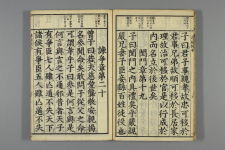 子曰君子事親孝故忠可移於
君事兄弟故順可移於長居家
理故治可移於官是以行成於
內而名立於後世矣
閨門章第十九
子曰閨門之內具禮矣乎嚴親
嚴兄妻子臣妾繇百姓徒役也
諫爭章第二十
曾子曰若夫慈愛龔敬安親揚
名參聞命矣敢問子從父之命
可謂孝乎子曰參是何言與是
何言與言之不通邪昔者天子
有爭臣七人雖亡道不失天下
諸侯有爭臣五人雖亡道不失